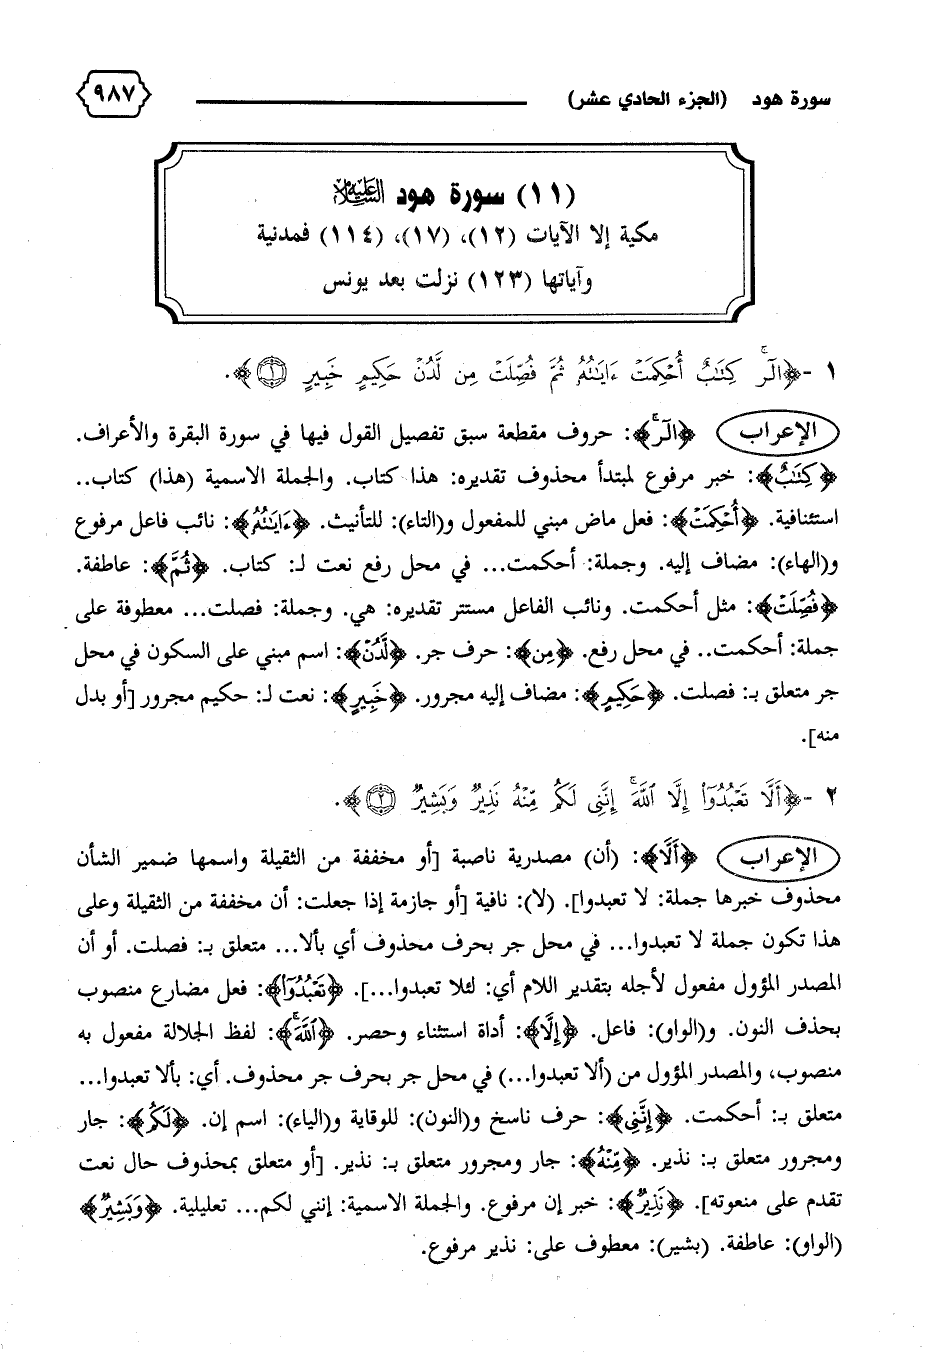 سورة هود (الجزء الحادي عشر) ٩٨٧
(١١) سورة هود عليه السلام
مكية إلا الآيات (١٢)، (١٧)، (١١٤) فمدنية
وآياتها (١٢٣) نزلت بعد يونس
١ - ﴿الٓرۚ كِتَٰبٌ أُحْكِمَتْ ءَايَٰتُهُۥ ثُمَّ فُصِّلَتْ مِن لَّدُنْ حَكِيمٍ خَبِيرٍ ۝١﴾.
الإعراب ﴿الٓرۚ﴾: حروف مقطعة سبق تفصيل القول فيها في سورة البقرة والأعراف.
﴿كِتَٰبٌ﴾: خبر مرفوع لمبتدأ محذوف تقديره: هذا كتاب. والجملة الاسمية (هذا) كتاب..
استئنافية. ﴿أُحْكِمَتْ﴾: فعل ماض مبني للمفعول و(التاء): للتأنيث. ﴿ءَايَٰتُهُۥ﴾: نائب فاعل مرفوع
و(الهاء): مضاف إليه. وجملة: أحكمت... في محل رفع نعت لـ: كتاب. ﴿ثُمَّ﴾: عاطفة.
﴿فُصِّلَتْ﴾: مثل أحكمت. ونائب الفاعل مستتر تقديره: هي. وجملة: فصلت... معطوفة على
جملة: أحكمت.. في محل رفع. ﴿مِن﴾: حرف جر. ﴿لَّدُنْ﴾: اسم مبني على السكون في محل
جر متعلق بـ: فصلت. ﴿حَكِيمٍ﴾: مضاف إليه مجرور. ﴿خَبِيرٍ﴾: نعت لـ: حكيم مجرور [أو بدل
منه].
٢ - ﴿أَلَّا تَعْبُدُوٓا۟ إِلَّا ٱللَّهَۚ إِنَّنِى لَكُم مِّنْهُ نَذِيرٌ وَبَشِيرٌ ۝٢﴾.
الإعراب ﴿أَلَّا﴾: (أن) مصدرية ناصبة [أو مخففة من الثقيلة واسمها ضمير الشأن
محذوف خبرها جملة: لا تعبدوا]. (لا): نافية [أو جازمة إذا جعلت: أن مخففة من الثقيلة وعلى
هذا تكون جملة لا تعبدوا... في محل جر بحرف محذوف أي بألا... متعلق بـ: فصلت. أو أن
المصدر المؤول مفعول لأجله بتقدير اللام أي: لئلا تعبدوا...]. ﴿تَعْبُدُوٓا۟﴾: فعل مضارع منصوب
بحذف النون. و(الواو): فاعل. ﴿إِلَّا﴾: أداة استثناء وحصر. ﴿ٱللَّهَۚ﴾: لفظ الجلالة مفعول به
منصوب، والمصدر المؤول من (ألا تعبدوا...) في محل جر بحرف جر محذوف. أي: بألا تعبدوا...
متعلق بـ: أحكمت. ﴿إِنَّنِى﴾: حرف ناسخ و(النون): للوقاية و(الياء): اسم إن. ﴿لَكُم﴾: جار
ومجرور متعلق بـ: نذير. ﴿مِّنْهُ﴾: جار ومجرور متعلق بـ: نذير. [أو متعلق بمحذوف حال نعت
تقدم على منعوته]. ﴿نَذِيرٌ﴾: خبر إن مرفوع. والجملة الاسمية: إنني لكم... تعليلية. ﴿وَبَشِيرٌ﴾
(الواو): عاطفة. (بشير): معطوف على: نذير مرفوع.